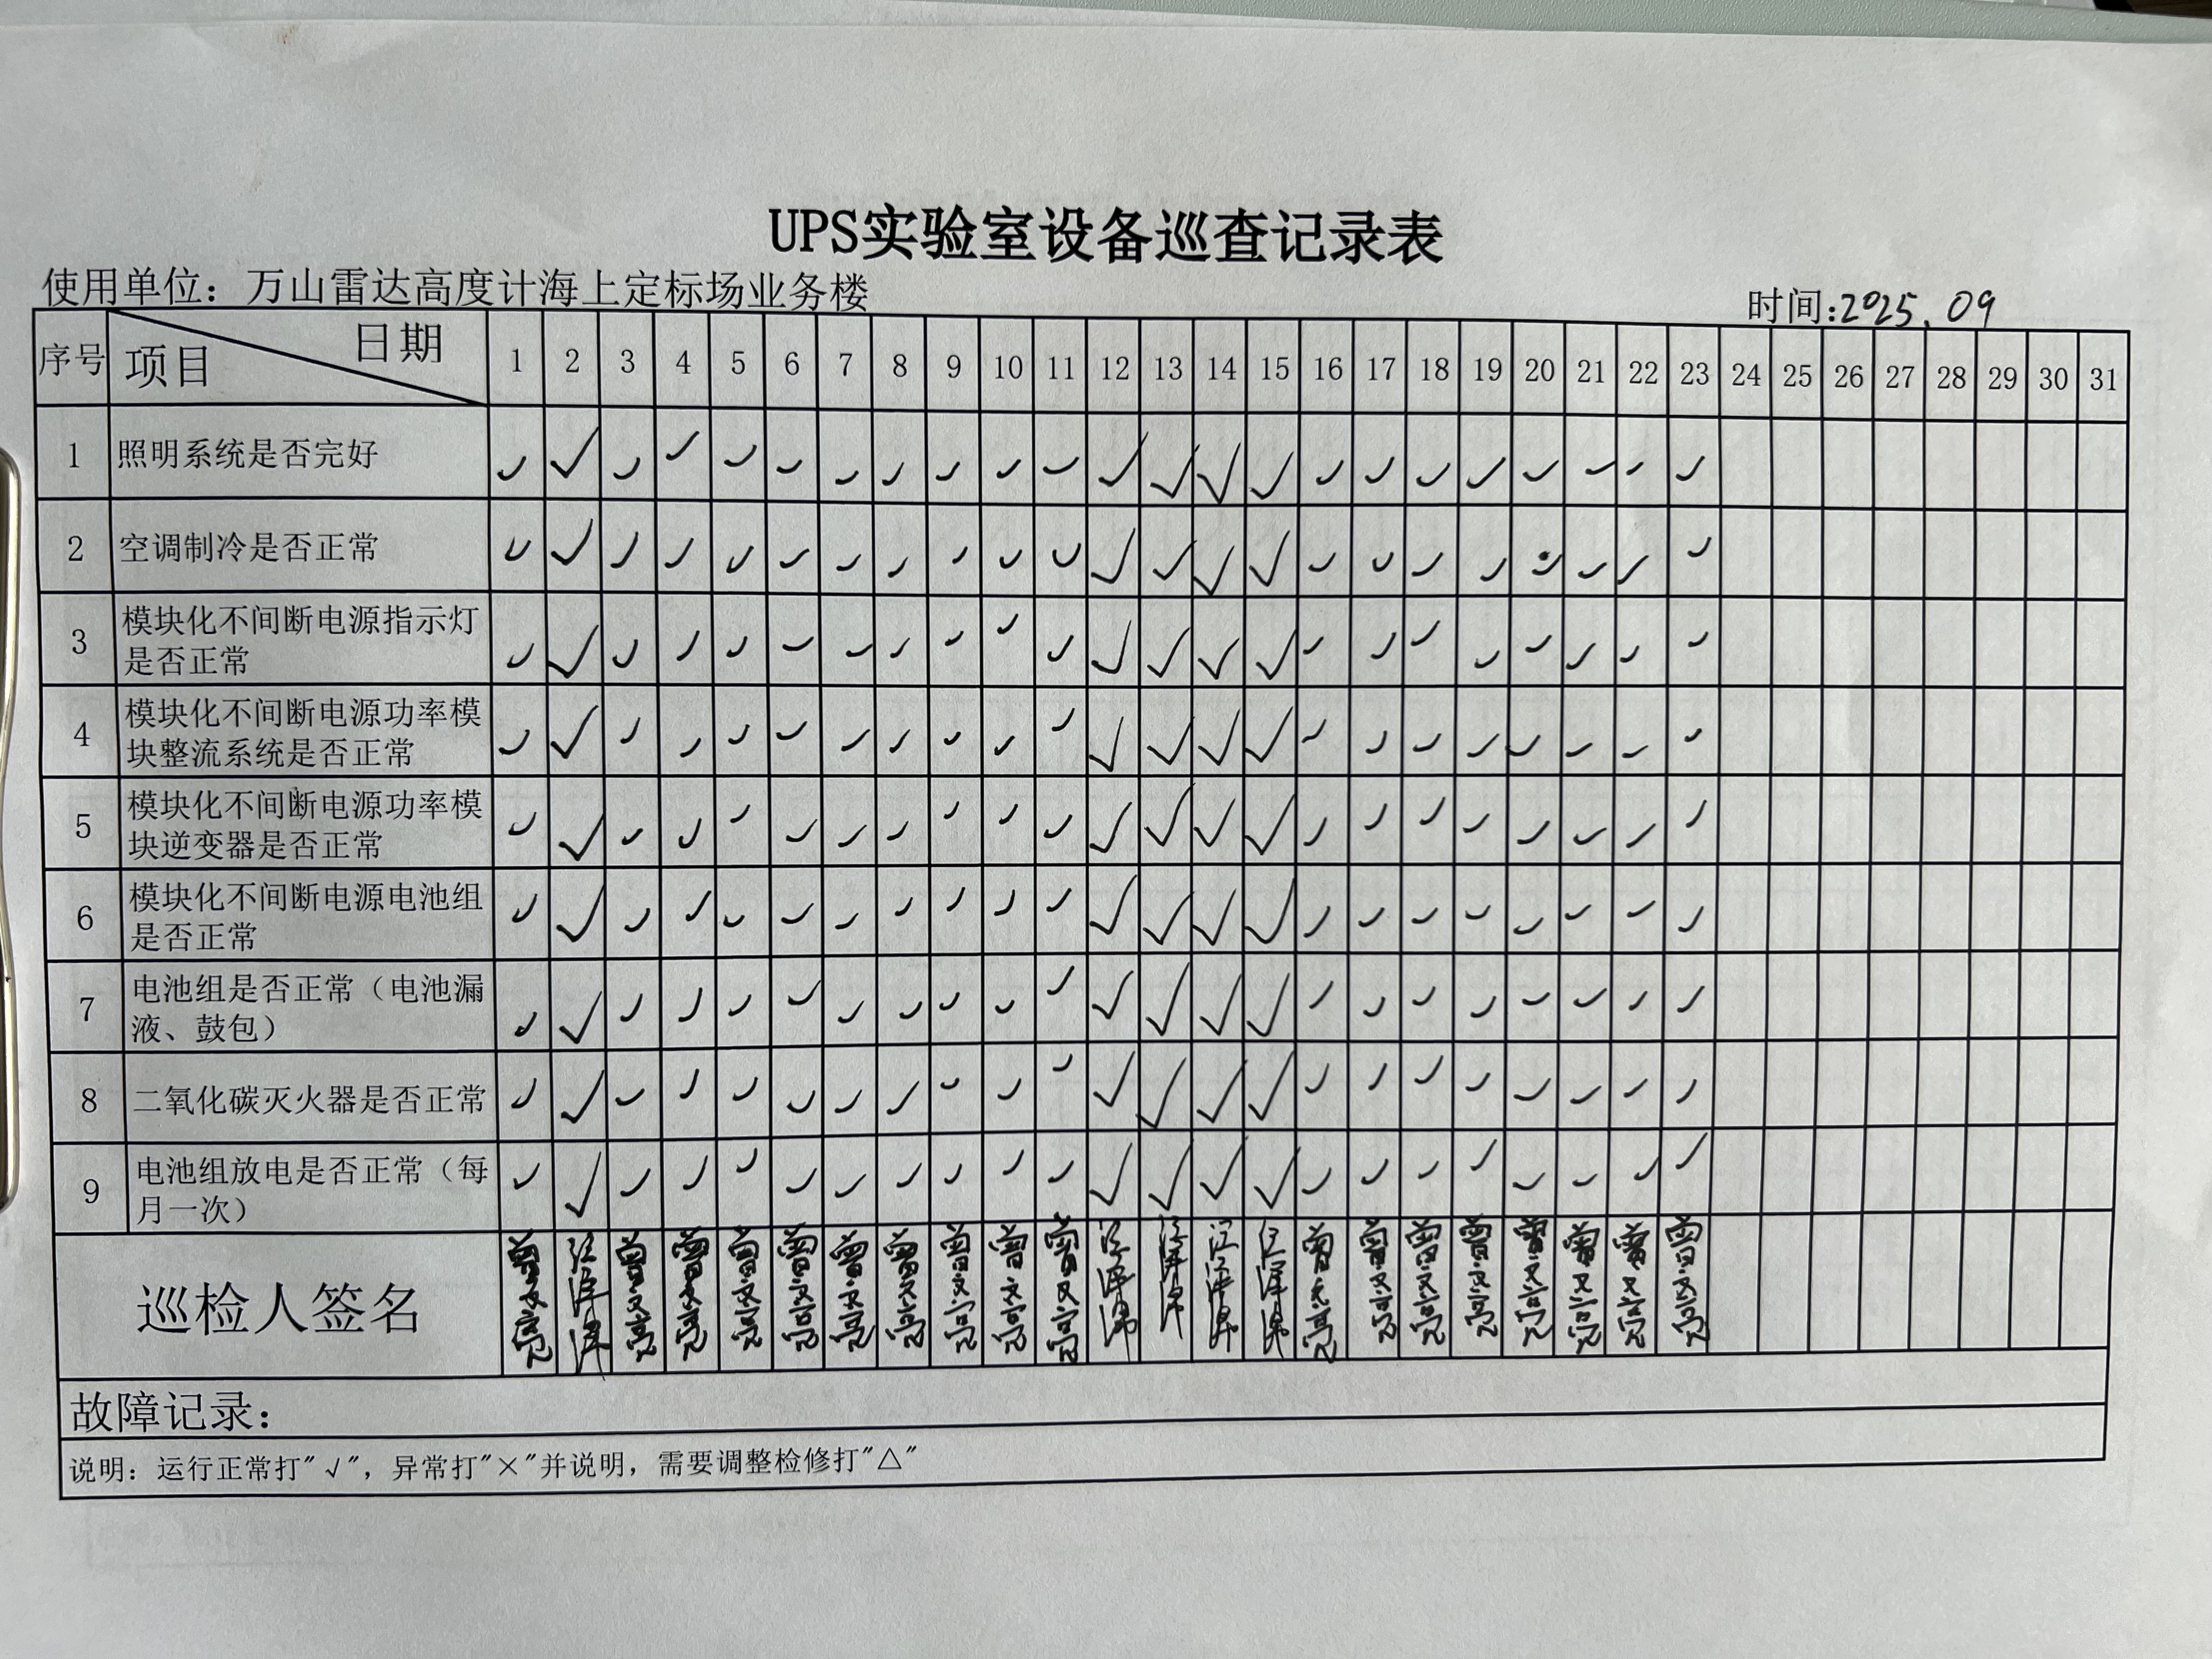 UPS实验室设备巡查记录表
使用单位：万山雷达高度计海上定标场业务楼 时间:2025.09
序号 项目 日期 1 2 3 4 5 6 7 8 9 10 11 12 13 14 15 16 17 18 19 20 21 22 23 24 25 26 27 28 29 30 31
1 照明系统是否完好 ✓ ✓ ✓ ✓ ✓ ✓ ✓ ✓ ✓ ✓ ✓ ✓ ✓ ✓ ✓ ✓ ✓ ✓ ✓ ✓ ✓ ✓ ✓
2 空调制冷是否正常 ✓ ✓ ✓ ✓ ✓ ✓ ✓ ✓ ✓ ✓ ✓ ✓ ✓ ✓ ✓ ✓ ✓ ✓ ✓ ✓ ✓ ✓ ✓
3 模块化不间断电源指示灯
是否正常 ✓ ✓ ✓ ✓ ✓ ✓ ✓ ✓ ✓ ✓ ✓ ✓ ✓ ✓ ✓ ✓ ✓ ✓ ✓ ✓ ✓ ✓ ✓
4 模块化不间断电源功率模
块整流系统是否正常 ✓ ✓ ✓ ✓ ✓ ✓ ✓ ✓ ✓ ✓ ✓ ✓ ✓ ✓ ✓ ✓ ✓ ✓ ✓ ✓ ✓ ✓ ✓
5 模块化不间断电源功率模
块逆变器是否正常 ✓ ✓ ✓ ✓ ✓ ✓ ✓ ✓ ✓ ✓ ✓ ✓ ✓ ✓ ✓ ✓ ✓ ✓ ✓ ✓ ✓ ✓ ✓
6 模块化不间断电源电池组
是否正常 ✓ ✓ ✓ ✓ ✓ ✓ ✓ ✓ ✓ ✓ ✓ ✓ ✓ ✓ ✓ ✓ ✓ ✓ ✓ ✓ ✓ ✓ ✓
7 电池组是否正常（电池漏
液、鼓包） ✓ ✓ ✓ ✓ ✓ ✓ ✓ ✓ ✓ ✓ ✓ ✓ ✓ ✓ ✓ ✓ ✓ ✓ ✓ ✓ ✓ ✓ ✓
8 二氧化碳灭火器是否正常 ✓ ✓ ✓ ✓ ✓ ✓ ✓ ✓ ✓ ✓ ✓ ✓ ✓ ✓ ✓ ✓ ✓ ✓ ✓ ✓ ✓ ✓ ✓
9 电池组放电是否正常（每
月一次） ✓ ✓ ✓ ✓ ✓ ✓ ✓ ✓ ✓ ✓ ✓ ✓ ✓ ✓ ✓ ✓ ✓ ✓ ✓ ✓ ✓ ✓ ✓
巡检人签名 曾文亮 曾文亮 曾文亮 曾文亮 曾文亮 曾文亮 曾文亮 曾文亮 曾文亮 曾文亮 曾文亮 曾文亮 曾文亮 曾文亮 曾文亮 曾文亮 曾文亮 曾文亮
故障记录：
说明：运行正常打"√"，异常打"×"并说明，需要调整检修打"△"